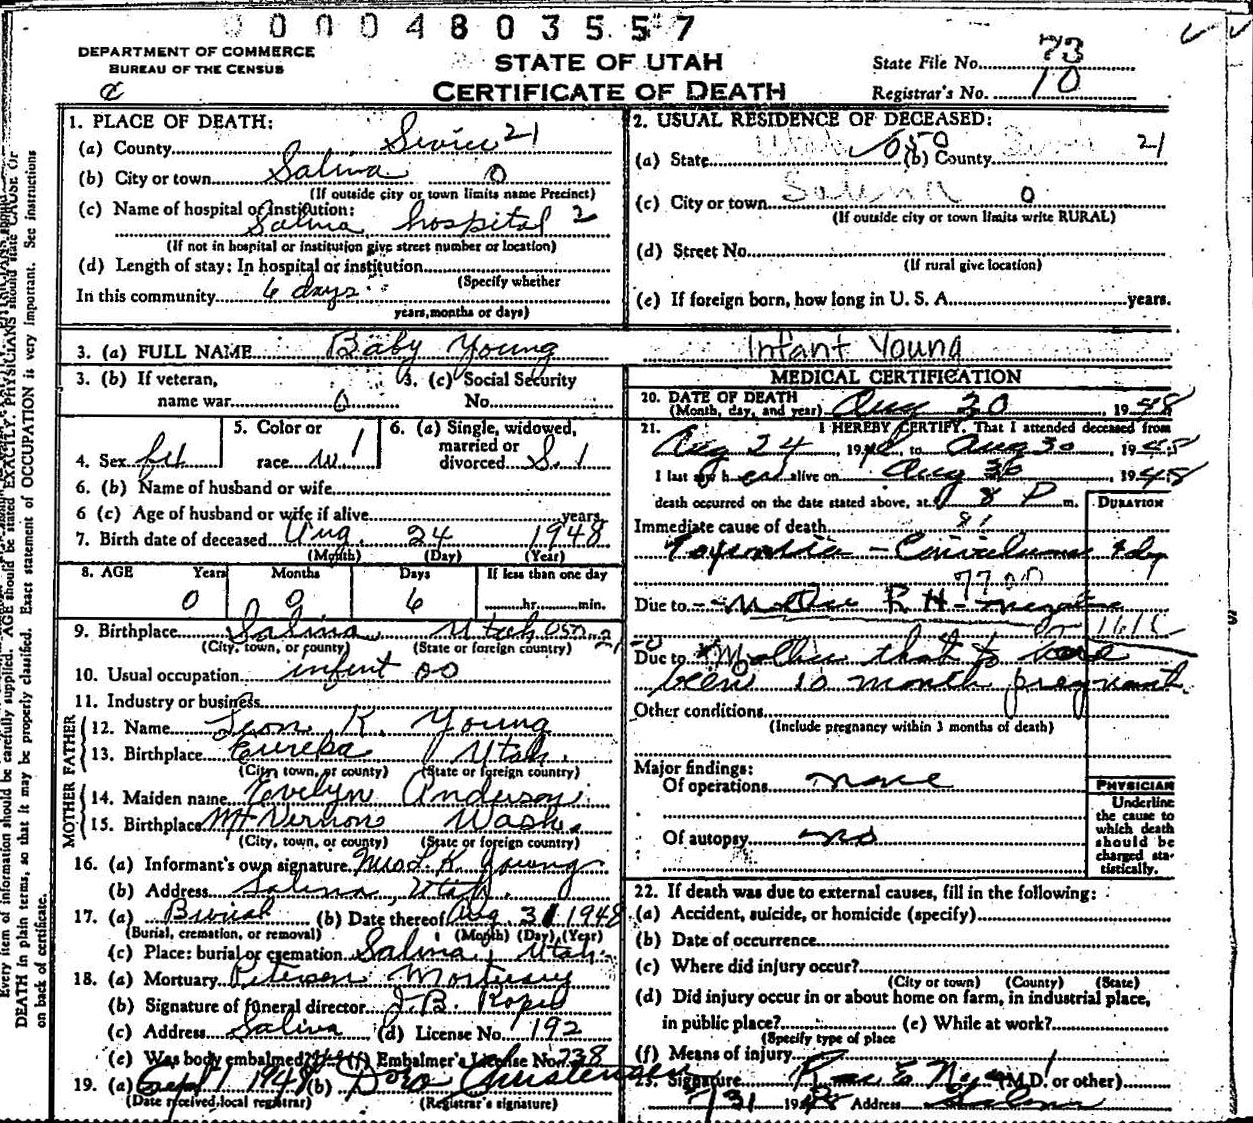 0 0 0 0 4 8 0 3 5 5 7
DEPARTMENT OF COMMERCE
BUREAU OF THE CENSUS
STATE OF UTAH
CERTIFICATE OF DEATH
State File No. 73
Registrar's No. 10
1. PLACE OF DEATH:
(a) County Sevier 21
(b) City or town Salina 0
(If outside city or town limits name Precinct)
(c) Name of hospital or institution:
Salina hospital 2
(If not in hospital or institution give street number or location)
(d) Length of stay: In hospital or institution
(Specify whether
In this community 6 days
years, months or days)
2. USUAL RESIDENCE OF DECEASED:
(a) State Utah 050 (b) County Sevier 21
(c) City or town Salena 0
(If outside city or town limits write RURAL)
(d) Street No.
(If rural give location)
(e) If foreign born, how long in U. S. A. years.
3. (a) FULL NAME Baby Young Infant Young
3. (b) If veteran,
name war 0
3. (c) Social Security
No.
4. Sex
5. Color or
race w. 1
6. (a) Single, widowed,
married or
divorced S. 1
6. (b) Name of husband or wife
6 (c) Age of husband or wife if alive years
7. Birth date of deceased Aug. 24 1948
(Month) (Day) (Year)
8. AGE Years Months Days If less than one day
0 0 6 hr. min.
9. Birthplace Salina, Utah 050 21
(City, town, or county) (State or foreign country)
10. Usual occupation infent 00
11. Industry or business
MOTHER FATHER
12. Name Leon K. Young
13. Birthplace Eureka Utah.
(City, town, or county) (State or foreign country)
14. Maiden name Evelyn Anderson
15. Birthplace Mt Vernon Wash.
(City, town, or county) (State or foreign country)
16. (a) Informant's own signature Mrs L. K. Young
(b) Address Salina, Utah.
17. (a) Burial (b) Date thereof Aug 31 1948
(Burial, cremation, or removal) (Month) (Day) (Year)
(c) Place: burial or cremation Salina, Utah.
18. (a) Mortuary Petersen Mortuary
(b) Signature of funeral director J. B.
(c) Address Salina (d) License No. 192
(e) Was body embalmed? (f) Embalmer's License No. 238
19. (a) Sept 1 1948 (b) Dora Christensen
(Date received local registrar) (Registrar's signature)
MEDICAL CERTIFICATION
20. DATE OF DEATH
(Month, day, and year) Aug 30 1948
21. I HEREBY CERTIFY, That I attended deceased from
Aug 24, 1948, to Aug 30, 1948
I last saw h er alive on Aug 30, 1948
death occurred on the date stated above, at 8 P m.
DURATION
Immediate cause of death
Due to Mother RH - negative
Due to Mother that to have
been 10 month pregnant.
Other conditions
(Include pregnancy within 3 months of death)
Major findings:
Of operations none
Of autopsy no
PHYSICIAN
Underline
the cause to
which death
should be
charged sta-
tistically.
22. If death was due to external causes, fill in the following:
(a) Accident, suicide, or homicide (specify)
(b) Date of occurrence
(c) Where did injury occur?
(City or town) (County) (State)
(d) Did injury occur in or about home on farm, in industrial place,
in public place? (e) While at work?
(Specify type of place
(f) Means of injury
23. Signature Rae E. Noyes (M.D. or other)
1948 Address Salina
Every item of information should be carefully supplied. AGE should be stated EXACTLY. PHYSICIANS should state CAUSE OF
DEATH in plain terms, so that it may be properly classified. Exact statement of OCCUPATION is very important. See instructions
on back of certificate.